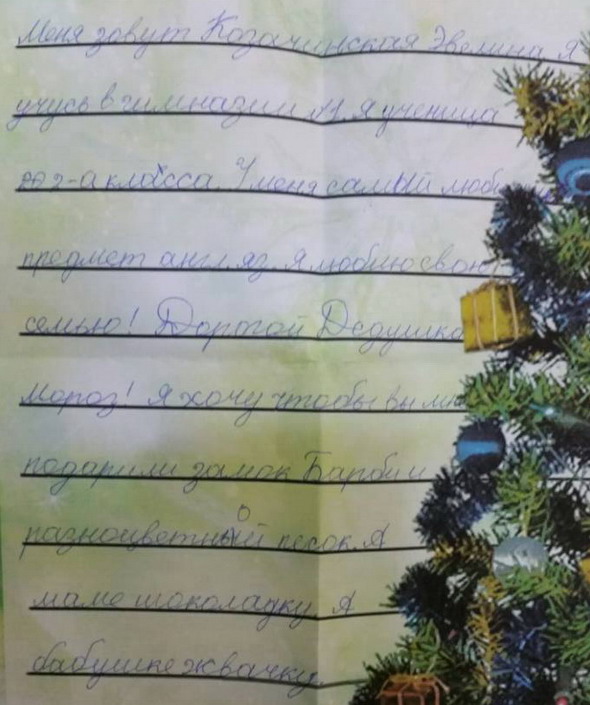 Меня зовут Козачинская Эвелина Я
учусь в гимназии №1 я ученица
2-а класса. У меня самый люби
предмет англ яз. Я люблю свою
семью! Дортой Дедушка
Мороз! Я хочу чтобы вы мне
подарили замок Барби и
разноцветный песок. А
маме шоколадку А
бабушке жвачку.